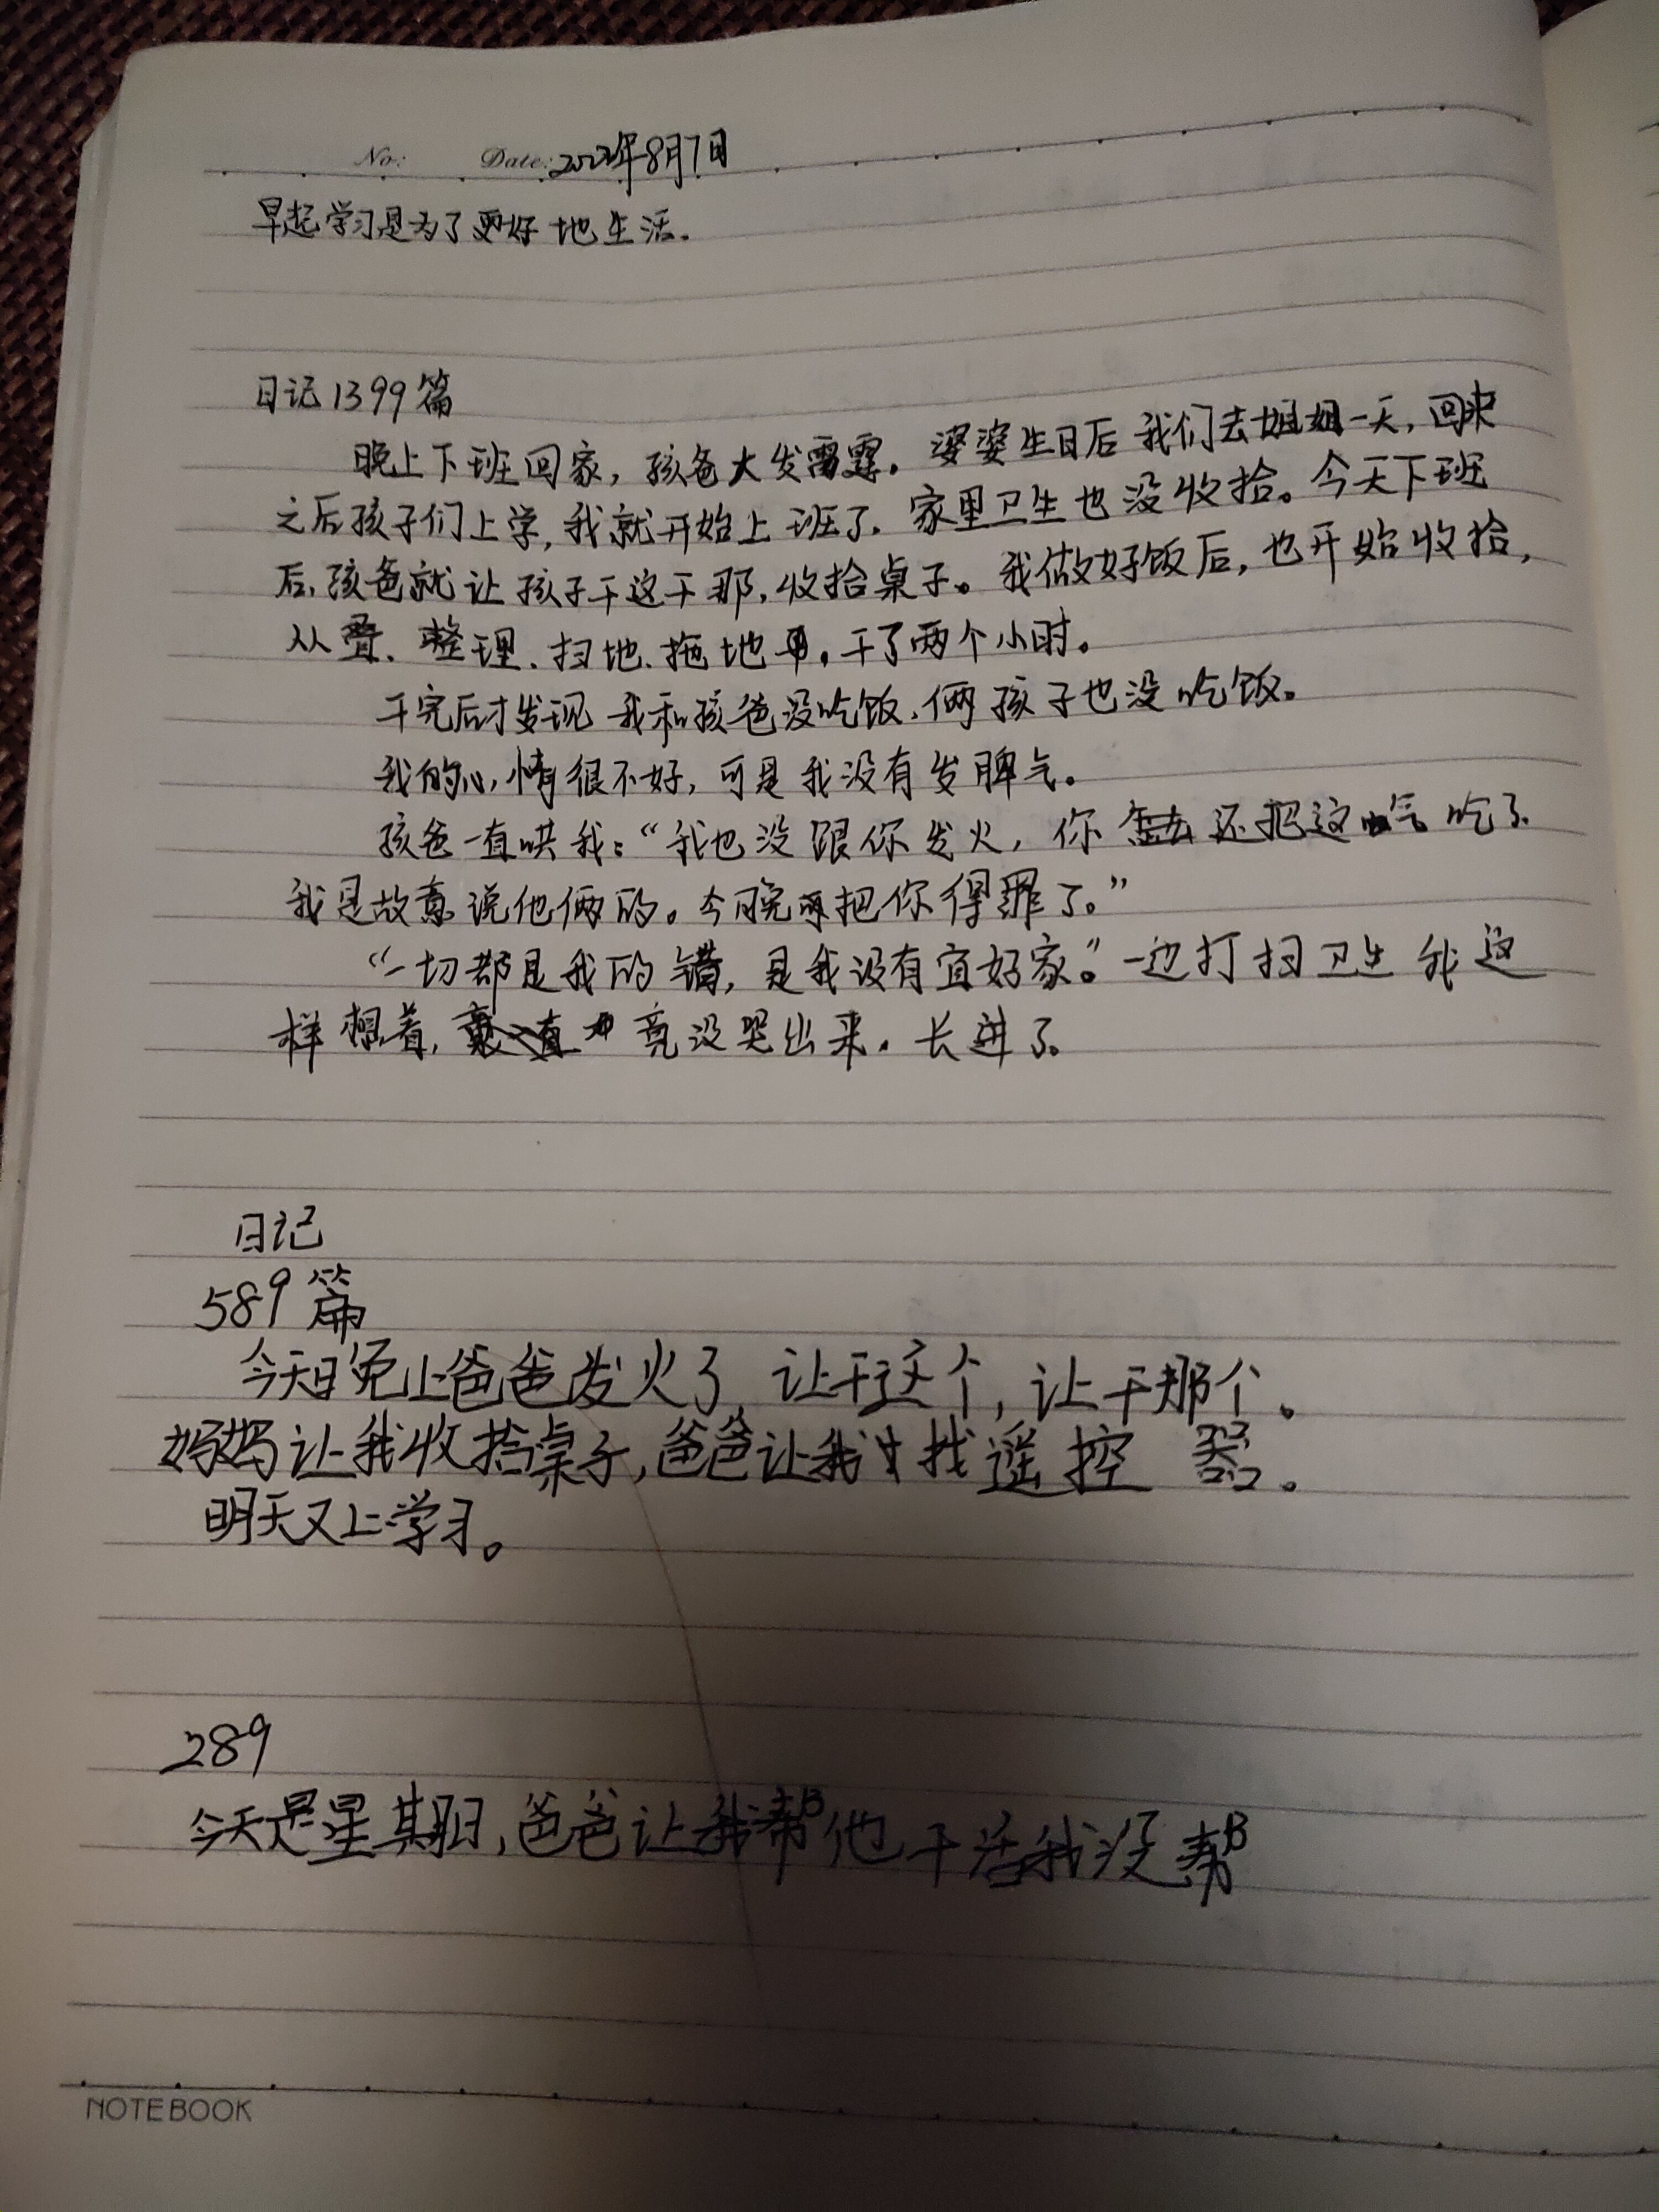 No: Date: 2022年8月7日
早起学习是为了更好地生活.
日记1399篇
晚上下班回家,孩爸大发雷霆.婆婆生日后我们去姐姐一天,回来
之后孩子们上学,我就开始上班了.家里卫生也没收拾。今天下班
后,孩爸就让孩子干这干那,收拾桌子。我做好饭后,也开始收拾,
从叠、整理、扫地、拖地,干了两个小时。
干完后才发现我和孩爸没吃饭,俩孩子也没吃饭。
我的心情很不好,可是我没有发脾气。
孩爸一直哄我:“我也没跟你发火,你还把这气吃了
我是故意说他俩的。今晚再把你得罪了。”
“一切都是我的错,是我没有宜好家。”一边打扫卫生我这
样想着,竟没哭出来.长进了。
日记
589篇
今天晚上爸爸发火了,让干这个,让干那个。
妈妈让我收拾桌子,爸爸让我找遥控器。
明天又上学习。
289
今天是星期日,爸爸让我帮他干活我没帮
NOTEBOOK